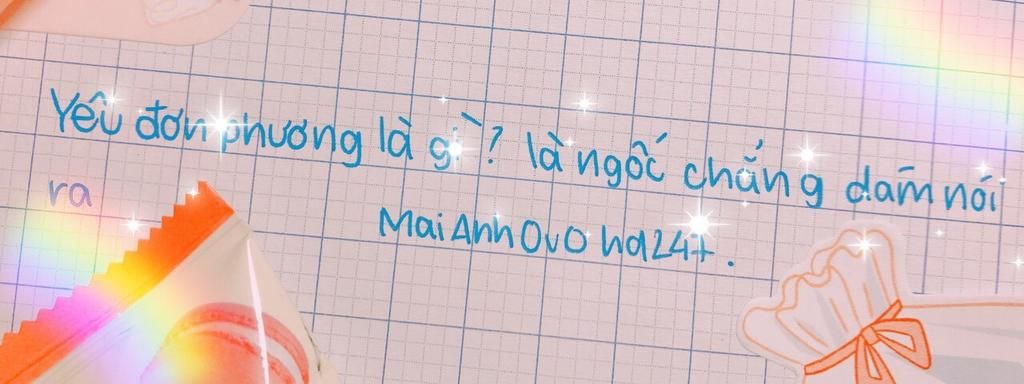 Yêu đơn phương là gì? là ngốc chẳng dám nói
ra
MaiAnh OvO hd24+.